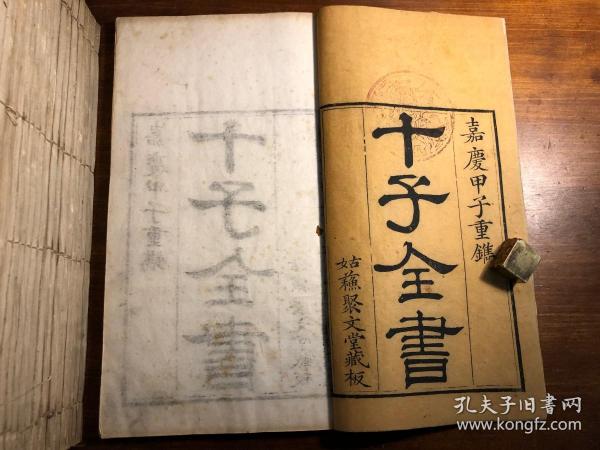 嘉慶甲子重鐫
十子全書
姑蘓聚文堂藏板
孔夫子旧书网
www.kongfz.com